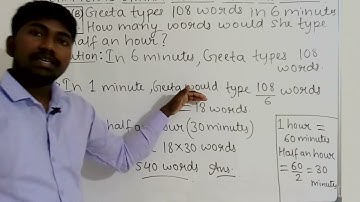 (B) Geeta types 108 words in 6 minutes
How many words would she type
half an hour?
ution: In 6 minutes, Geeta types 108
words.
In 1 minute, Geeta would type 108/6 words
= 18 words.
half an hour (30 minutes)
= 18×30 words
540 words Ans.
1 hour =
60 minutes
Half an hour
= 60/2 = 30
minutes